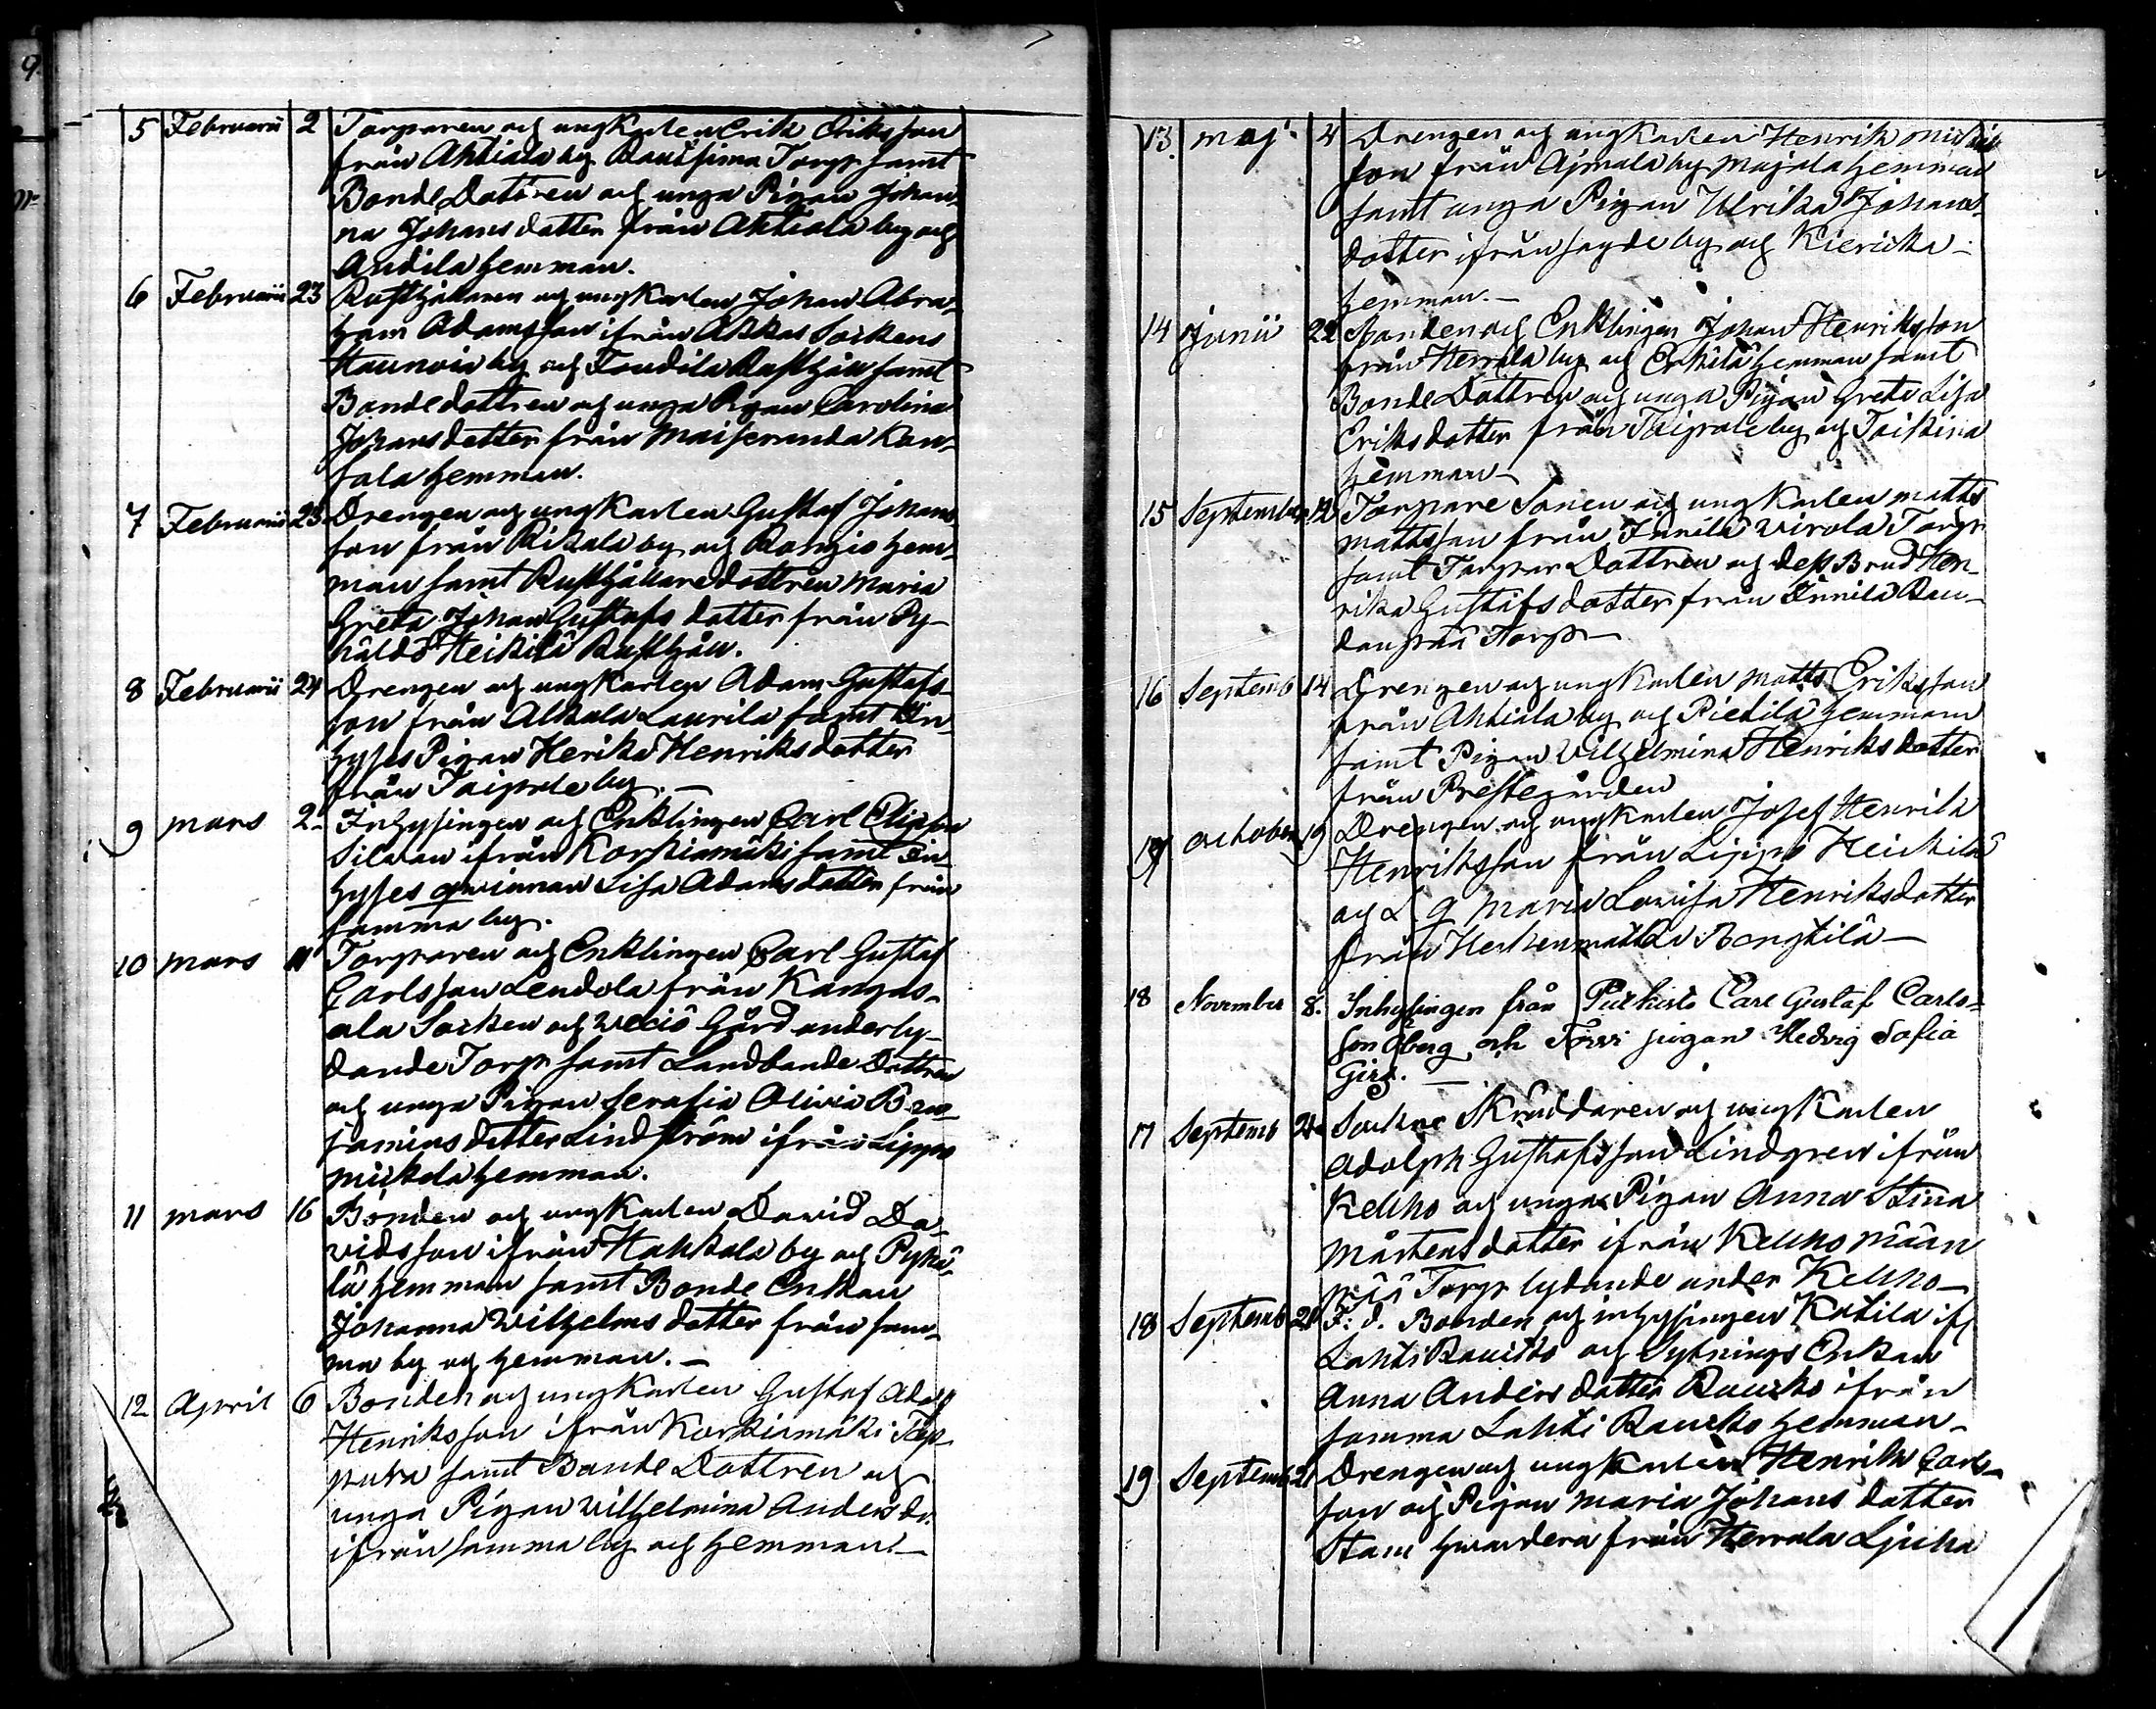 5 Februarii 2 Torparen och ungKarlen Erik Eriksson
från Ahtiala by Rautsima Torp samt
Bonde Dottren och unga Pigan Johan¬
na Johansdotter från Ahtiala by och
Andila hemman.
6 Februarii 23 Rusthållaren och ungKarlen Johan Abra¬
ham Adamsson ifrån Akkas Sockens
Haunoia by och Toudila Rusthåll samt
Bonde dottren och unga Pigan Carolina
Johansdotter från Maiseranda Kan¬
sala hemman.
7 Februarii 23 Drengen och ungKarlen Gustaf Johans¬
son från Rikala by och Bongio hem¬
man samt Rusthållaredottren Maria
Greta Johan Gustafs dotter från Py¬
häldö Heikilä Rusthåll.
8 Februarii 24 Drengen och ungKarlen Adam Gustafs¬
son från Alkala Laurila samt In¬
hyses Pigan Herika Henriksdotter
från Taipale by. —
9 mars 2 Inhysingen och Enklingen Carl
Silvan ifrån Korkiamäki samt in¬
hyses qwinnan Lisa Adamsdotter från
samma by.
10 mars 11 Torparen och Enklingen Carl Gustaf
Carlsson Lendola från Kangas¬
ala Socken och Weciö Gård underly¬
dande Torp samt Landbonde Dottren
och unga Pigan Serafia Olivia Ben¬
jamins dotter Lindström ifrån Lippo
Mickola hemman.
11 mars 16 Bonden och ungKarlen David Da¬
vidsson ifrån Hahkala by och Pyhä¬
lä hemman samt Bonde Enkan
Johanna Wilhelms dotter från sam¬
ma by och hemman. —
12 April 6 Bonden och ungKarlen Gustaf Adolf
Henriksson ifrån Korkiamäki Tap¬
pura samt Bonde Dottren och
unga Pigan Vilhelmina Anders dr.
ifrån samma by och hemman —
13 maj 4 Drengen och ungKarlen Henrik
son från Ajmala by Majala hemman
samt unga Pigan Ulrika Johans¬
dotter ifrån sagde by och Kiericka
hemman. —
14 Junii 22 Bonden och Enklingen Johan Henriksson
från Herrala by och Erkilä hemman samt
Bonde Dottren och unga Pigan Greta Lisa
Eriksdotter från Taipale by och Taikina
hemman —
15 September 12 Torpare Sonen och ungKarlen Matts
Mattsson från Innilä Virola Torp
samt Torpar Dottren och dess Brud Hen¬
rika Gustafsdotter från Innilä Rau¬
danpää Torp —
16 Septemb 14 Drengen och ungKarlen Matts Eriksson
från Ahtiala by och Pietilä hemman
samt Pigan Vilhelmina Henriksdotter
från Prestegården
19 october 19 Drengen och ungKarlen Josef Henrik
Henriksson från Lippo Heikilä
och L. q Maria Lovisa Henriksdotter
från Herkenmatka Bengtilä —
18 November 8. Inhysingen från Putkisto Carl Gustaf Carls¬
son Öberg och Torri pigan Hedvig Sofia
Girs. —
17 Septemb 21 Sockne Skräddaren och ungKarlen
Adolph Gustafsson Lindgren ifrån
Kelkho och unga Pigan Anna Stina
Mårtensdotter ifrån Kelkho mään
pää Torp lydande under Kelkho —
18 Septemb 21 F: d. Bonden och inhysingen Katila if
Lahti Rauckko och Sytnings Enkan
Anna Anders dotter Rauckko ifrån
samma Lahti Raucko hemman —
19 Septemb 21 Drengen och ungKarlen Henrik Carls¬
son och Pigan Maria Johans dotter
Stam hwardera från Herrala Ljuha